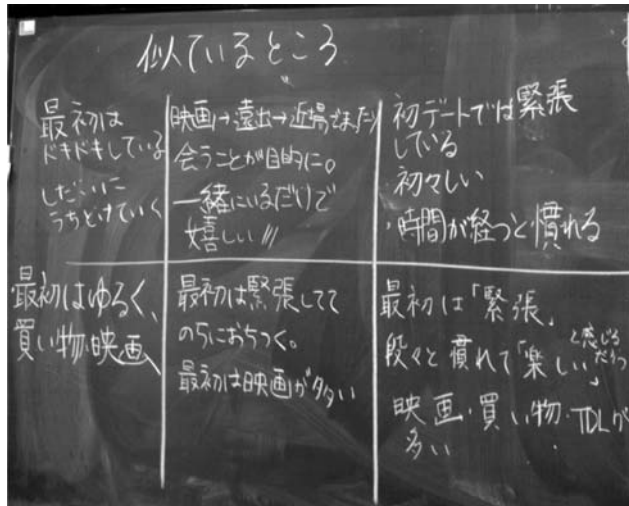 似ているところ
最初は
ドキドキしている
しだいに
うちとけていく
映画→遠出→近場でまったり
会うことが目的に。
一緒にいるだけで
嬉しい///
初デートでは緊張
している
初々しい
・時間が経つと慣れる
・最初はゆるく、
買い物・映画
最初は緊張してて
のちにおちつく。
最初は映画が多い
最初は「緊張」
段々と慣れて「楽しい」と感じるだろう
映画・買い物・TDLが
多い